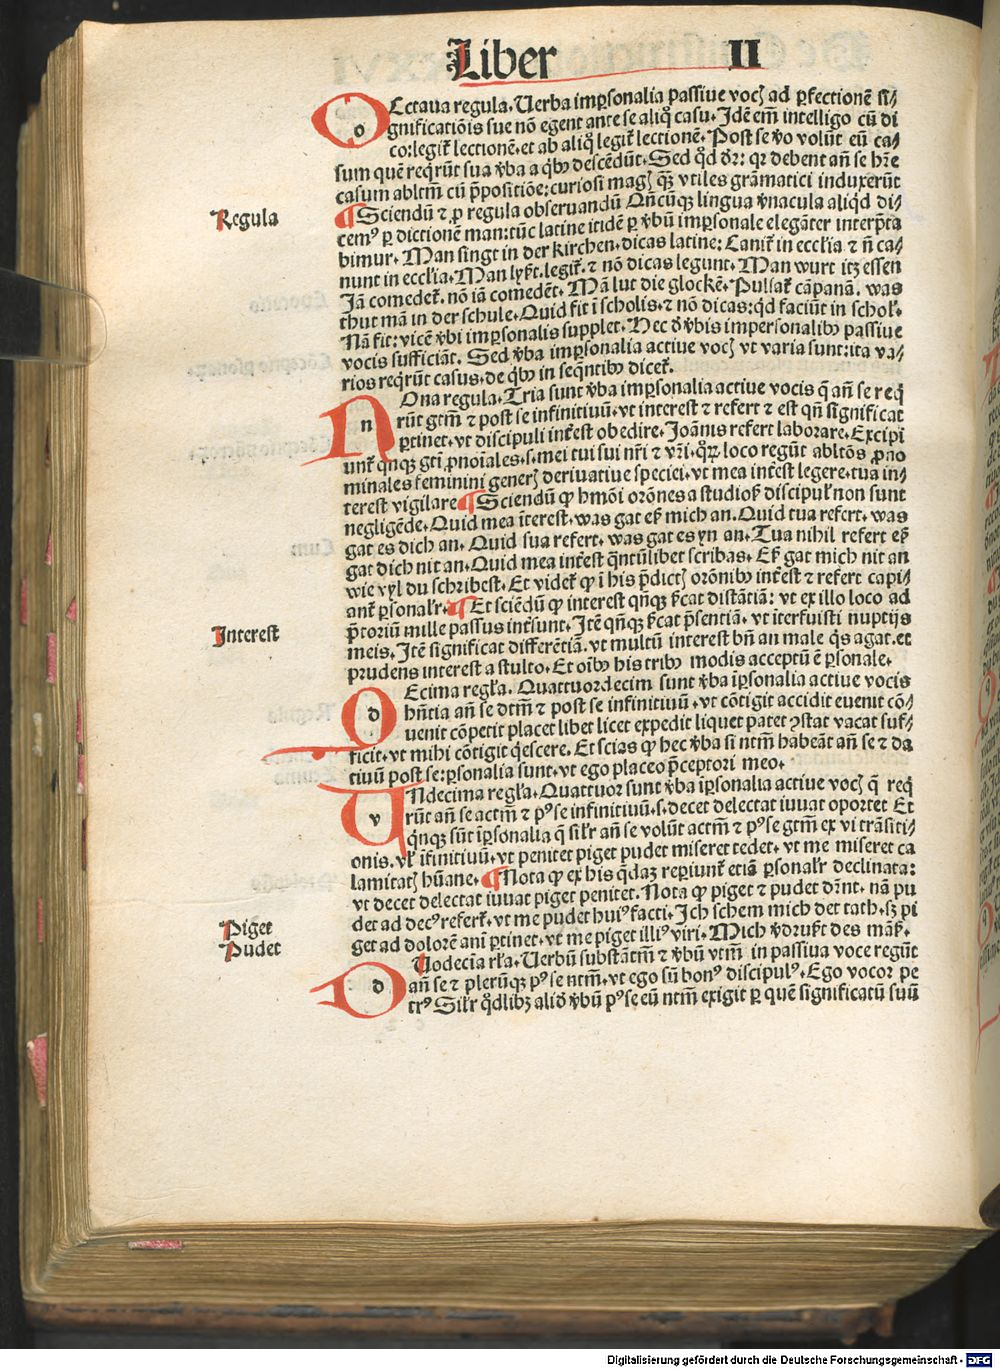 Liber II
OCtaua regula. Uerba imꝑsonalia passiue vocꝭ ad ꝑfectionē si⸗
gnificatiōis sue nō egent ante se aliqͦ casu. Idē em̄ intelligo cū di
co: legit᷑ lectionē. et ab aliqͦ legit᷑ lectionē. Post se v̄o volūt eū ca⸗
sum quē reqͥrūt sua v̄ba a qͥbꝰ descēdūt. Sed qͦd dr̄: qꝛ debent an̄ se hr̄e
casum abltm̄ cū p̄positiōe: curiosi magꝭ qᷓꝫ vtiles grāmatici induxerūt
Regula
¶ Sciendū ⁊ ꝓ regula obseruandū Qn̄cūqꝫ lingua v̄nacula aliqͥd di⸗
cemꝰ ꝑ dictionē man: tūc latine itidē ꝑ v̄bū imꝑsonale elegāter interp̄ta
bimur. Man singt in der kirchen. dicas latine: Canit᷑ in eccl̄ia ⁊ n̄ ca⸗
nunt in eccl̄ia. Man lyſt. legit᷑. ⁊ nō dicas legunt. Man wurt itꝫ essen
Jā comedet᷑. nō iā comedēt. Mā lut die glockē. Pulsat᷑ cāpanā. was
thut mā in der schule. Quid fit ī scholis. ⁊ nō dicas: qͥd faciūt in schol᷑.
Nā fit: vicē v̄bi imꝑsonalis supplet. Hec d̄ v̄bis impersonalibꝰ passiue
vocis sufficiāt. Sed v̄ba imꝑsonalia actiue vocꝭ vt varia sunt: ita va⸗
rios reqͥrūt casus. de qͥbꝰ in seqn̄tibꝰ dicet᷑.
NOna regula. Tria sunt v̄ba imꝑsonalia actiue vocis q̄ an̄ se reqͥ
rūt gtm̄ ⁊ post se infinitiuū. vt interest ⁊ refert ⁊ est qn̄ significat
ꝑtinet. vt discipuli int̄est obedire. Joānis refert laborare. Excipi
unt᷑ qͥnqꝫ gt̄i ꝓnoīales. s. mei tui sui nr̄i ⁊ vr̄i. qͦꝝ loco regūt abltōs ꝓno
minales feminini generꝭ deriuatiue speciei. vt mea int̄est legere. tua in⸗
terest vigilare ¶ Sciendū ꝙ hmōi orōnes a studiosꝭ discipul᷑ non sunt
negligēde. Quid mea īterest. was gat eſ mich an. Quid tua refert. was
gat es dich an. Quid sua refert. was gat es yn an. Tua nihil refert eſ
gat dich nit an. Quid mea int̄est qn̄tūlibet scribas. Eſ gat mich nit an
wie vyl du schribest. Et videt᷑ ꝙ ī his p̄dictꝭ orōnibꝰ int̄est ⁊ refert capi⸗
ant᷑ ꝑsonalr᷑. ¶ Et sciēdū ꝙ interest qn̄qꝫ sͥcat distātiā: vt ex illo loco ad
Interest
p̄toriū mille passus int̄sunt. Itē qn̄qꝫ sͥcat p̄sentiā. vt iterfuisti nuptijs
meis. Itē significat differētiā. vt multū interest bn̄ an male qͥs agat. et
prudens interest a stulto. Et oībꝰ his tribꝰ modis acceptū ē ꝑsonale.
DEcima regl̄a. Quattuordecim sunt v̄ba īꝑsonalia actiue vocis
hn̄tia an̄ se dtm̄ ⁊ post se infinitiuū. vt cōtigit accidit euenit cō⸗
uenit cōpetit placet libet licet expedit liquet patet ꝯstat vacat suf⸗
ficit. vt mihi cōtigit qͥescere. Et scias ꝙ hec v̄ba si ntm̄ habeāt an̄ se ⁊ da
tiuū post se: ꝑsonalia sunt. vt ego placeo p̄ceptori meo.
VNdecima regl̄a. Quattuor sunt v̄ba īꝑsonalia actiue vocꝭ q̄ reqͥ
rūt an̄ se actm̄ ⁊ pꝰ se infinitiuū. s. decet delectat iuuat oportet Et
qͥnqꝫ sūt īꝑsonalia q̄ silr᷑ an̄ se volūt actm̄ ⁊ pꝰ se gtm̄ ex vi trāsiti⸗
onis. vl᷑ īfinitiuū. vt penitet piget pudet miseret tedet. vt me miseret ca
lamitatꝭ hūane. ¶ Nota ꝙ ex his qᷓdaꝫ reꝑiunt᷑ etiā ꝑsonalr᷑ declinata:
vt decet delectat iuuat piget penitet. Nota ꝙ piget ⁊ pudet dr̄nt. nā pu
Piget
det ad decꝰ refert᷑. vt me pudet huiꝰ facti. Ich schem mich der tath. sꝫ pi
Pudet
get ad dolorē anī ꝑtinet. vt me piget illiꝰ viri. Mich v̄druſt des maſ.
DUodecīa rl̄a. Uerbū substātm̄ ⁊ v̄bū vtm̄ in passiua voce regūt
an̄ se ⁊ plerūqꝫ pꝰ se ntm̄. vt ego sū bonꝰ discipulꝰ. Ego vocor pe
trꝰ Silr᷑ qͦdlibꝫ aliō v̄bū pꝰ se eū ntm̄ exigit ꝑ quē significatū suū
Digitalisierung gefördert durch die Deutsche Forschungsgemeinschaft - DFG